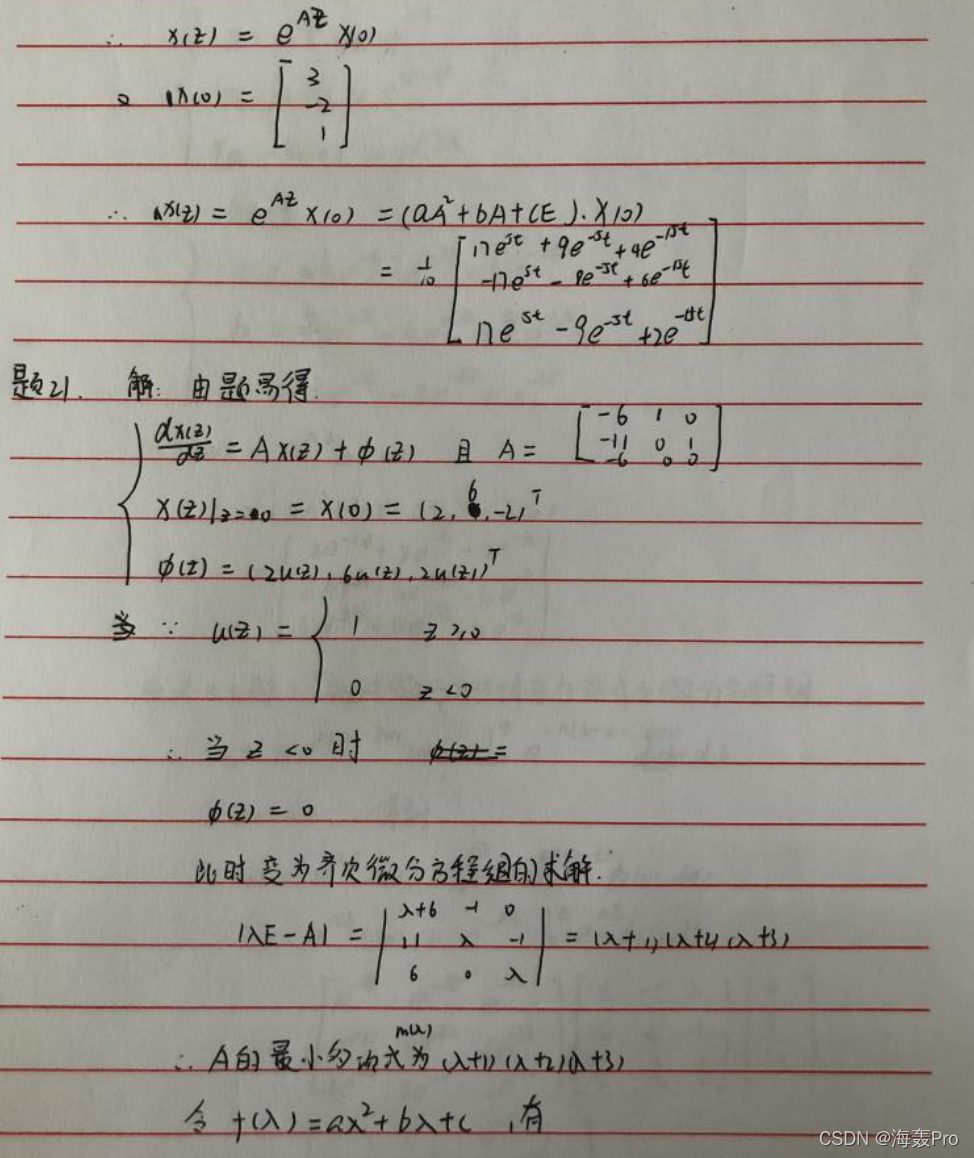 ∴ x(z) = e^{Az} x(0)
x(0) = [3 -2 1]
∴ x(z) = e^{Az} x(0) = (aA²+bA+cE)·x(0)
= 1/10 [17e^{5t} + 9e^{-5t} + 4e^{-15t}
-17e^{5t} - 9e^{-5t} + 6e^{-15t}
17e^{5t} - 9e^{-5t} + 2e^{-15t}]
题21. 解: 由题易得.
dx(z)/dz = A x(z) + ϕ(z) 且 A = [-6 1 0; -11 0 1; -6 0 0]
x(z)|z=0 = x(0) = (2, 6, -2)^T
ϕ(z) = (2u(z), 6u(z), 2u(z))^T
∵ u(z) = { 1 z≥0
0 z<0
∴ 当 z<0 时
ϕ(z) = 0
此时变为齐次微分方程组的求解.
|λE-A| = |λ+6 -1 0; 11 λ -1; 6 0 λ| = (λ+1)(λ+2)(λ+3)
∴ A的最小多项式为 m(λ) (λ+1)(λ+2)(λ+3)
令 f(λ) = aλ²+bλ+c ,有
CSDN @海轰Pro